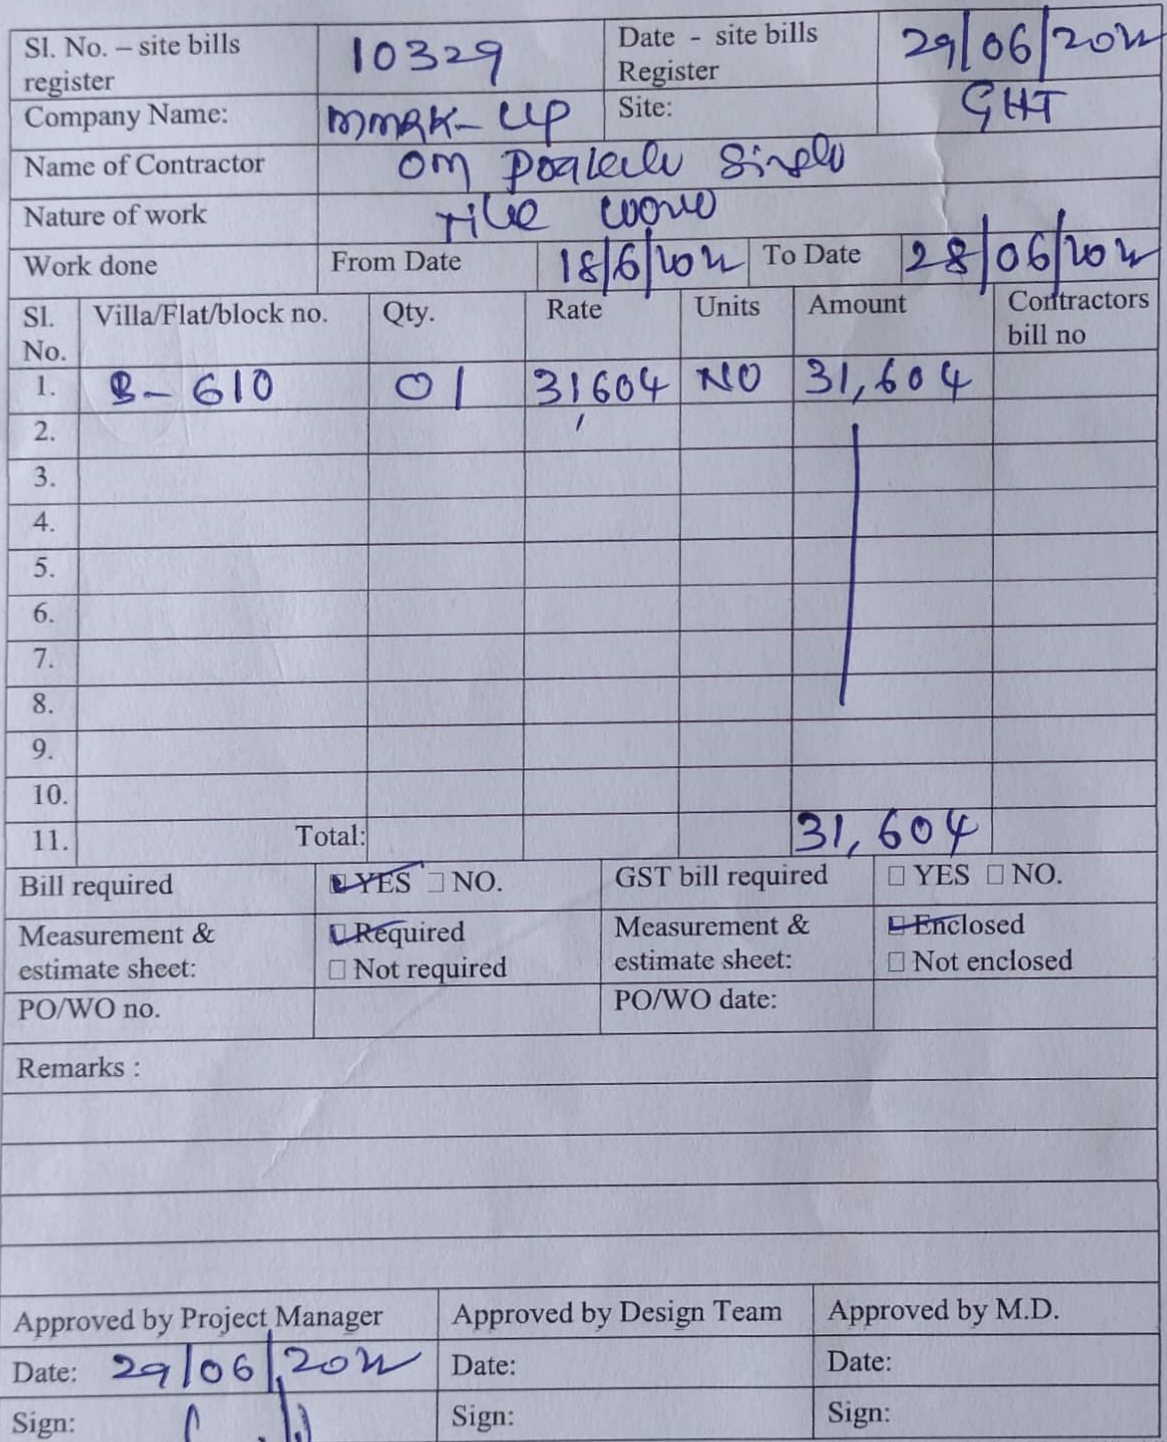 Sl. No. – site bills register 10329 Date - site bills Register 29/06/2022
Company Name: MMRK-LLP Site: GHT
Name of Contractor OM
Nature of work Tile work
Work done From Date 18/6/2022 To Date 28/06/2022
Sl. No. Villa/Flat/block no. Qty. Rate Units Amount Contractors bill no
1. B-610 01 31,604 NO 31,604
2.
3.
4.
5.
6.
7.
8.
9.
10.
11. Total: 31,604
Bill required YES NO. GST bill required YES NO.
Measurement & estimate sheet: Required Not required Measurement & estimate sheet: Enclosed Not enclosed
PO/WO no. PO/WO date:
Remarks :
Approved by Project Manager Approved by Design Team Approved by M.D.
Date: 29/06/2022 Date: Date:
Sign: Sign: Sign: